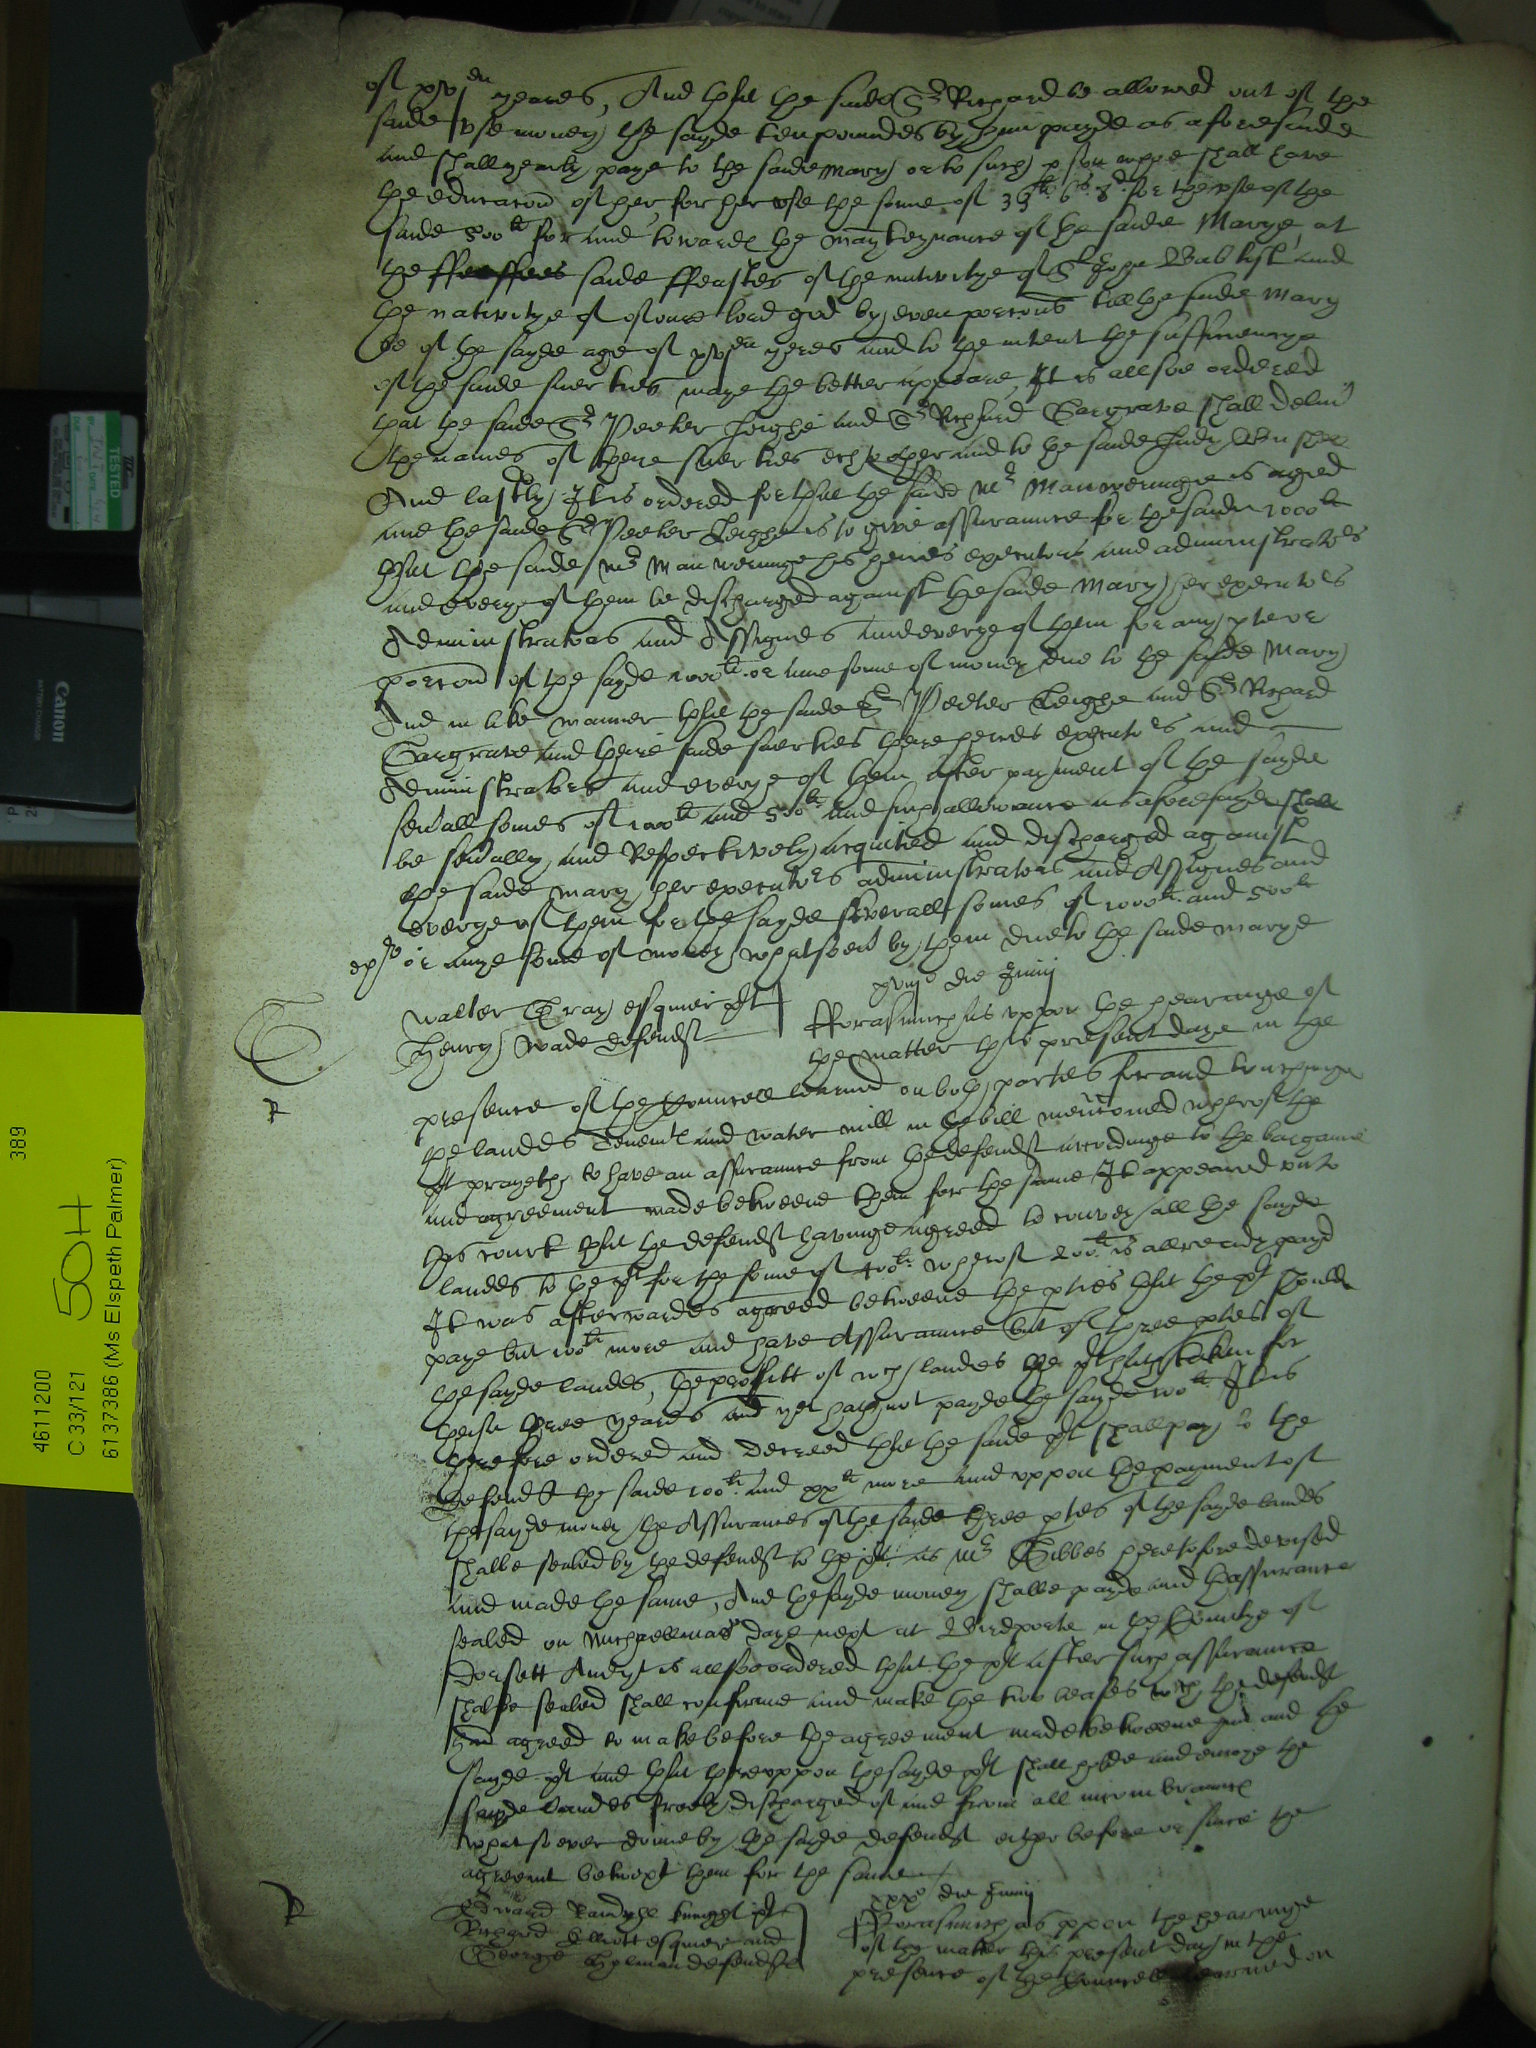 of xven yeares, And that the saide Sr Richard be allowed out of the
saide use money the sayde ten poundes by him payde as aforesaide
and shall yearly paye to the saide Mary or to such pson whoe shall have
the educacon of her for her use the some of 33li 6s 8d for the use of the
saide 500li for and towards the mayteynance of the saide Marye at
the saide ffeastes of the nativitye of St John Babtist and
the nativitye of of our lord god by even porcons till the saide Mary
be of the sayde age of xven yeres and to the intent the sufficiencye
of the saide suerties maye the better appeare, It is allsoe ordered
that the saide Sr Peeter Leighe and Sr Richard Gargrave shall deliu
the names of there suerties ech to other and to the saide Lady
And lastly It is ordered for that the saide Mr Manweringe is agreed
and the saide Sr Peeter Leighe is to give assurance for the saide 1000li
that the saide Mr Manweringe his heires executors and administrators
and everye of them be discharged against the saide Mary her executors
Administrators and Assignes and everye of them for any pte or
porcon of the sayde 1000li or anie some of money due to the sayde Mary
And in like manner that the saide Sr Peeter Leighe and Sr Richard
Gargrave and there saide suerties there heires executors and
Administrators and everye of them after payment of the sayde
seuall somes of 1000li and 500li and such allowance as aforesayde shall
be seually and Respectively acquited and discharged against
the saide Mary her executors administrators and Assignes and
everye of them for the sayde severall somes of 1000li and 500li
or anye some of money whatsoeu by them due to the saide Marye
die Junij
Walter Gray esquier plt
Henry Wade defendt
Fforasmuch as uppon the hearinge of
the matter this present daye in the
presence of the Councell learned on both parties for and touchinge
the landes Tenemts and water mill in the bill mencioned wherof the
plt prayeth to have an assurance from the defendt accordinge to the bargaine
and agreement made betweene them for the same It appeared unto
this court that the defendt havinge agreed to convey all the sayde
landes to the plt for the some of 400li wherof 200li is allready payd
It was afterwardes agreed betweene the pties that the plt should
paye but 100li more and have Assurance but of three ptes of
the sayde landes, the proffitt of wch landes the plt hath taken for
theise three yeares and yet hath not payde the sayde 100li It is
therefore ordered and decreed that the saide plt shall pay to the
defendt the saide 100li and xxli more and uppon the payment of
the sayde money the Assurances of the saide three ptes of the sayde landes
shalbe sealed by the defendt to the plt as Mr Gibbes heretofore devised
and made the same, And the sayde money shalbe payde and thassurance
sealed on Michaellmas daye next at Birdporte in the Countye of
Dorsett And yt is allsoe ordered that the plt after such assurance
shalbe sealed shall confirme and make the two leases wch the defendt
had agreed to make before the agreement made betweene him and the
sayde plt and that thereuppon the sayde plt shall holde and enioye the
sayde landes freely discharged of and from all incombrances
whatsoever donne by the sayde defendt either before or since the
agreemt betwixt them for the same
xxxo die Junij
Edward Randyll knight plt
Richard Elliott esquier and
George Hylman defendts
Fforasmuch as uppon the hearinge
of the matter this present day in the
presence of the Councell learned on
389
4611200
C 33/121
50H
6137386 (Ms Elspeth Palmer)
Canon
TESTED